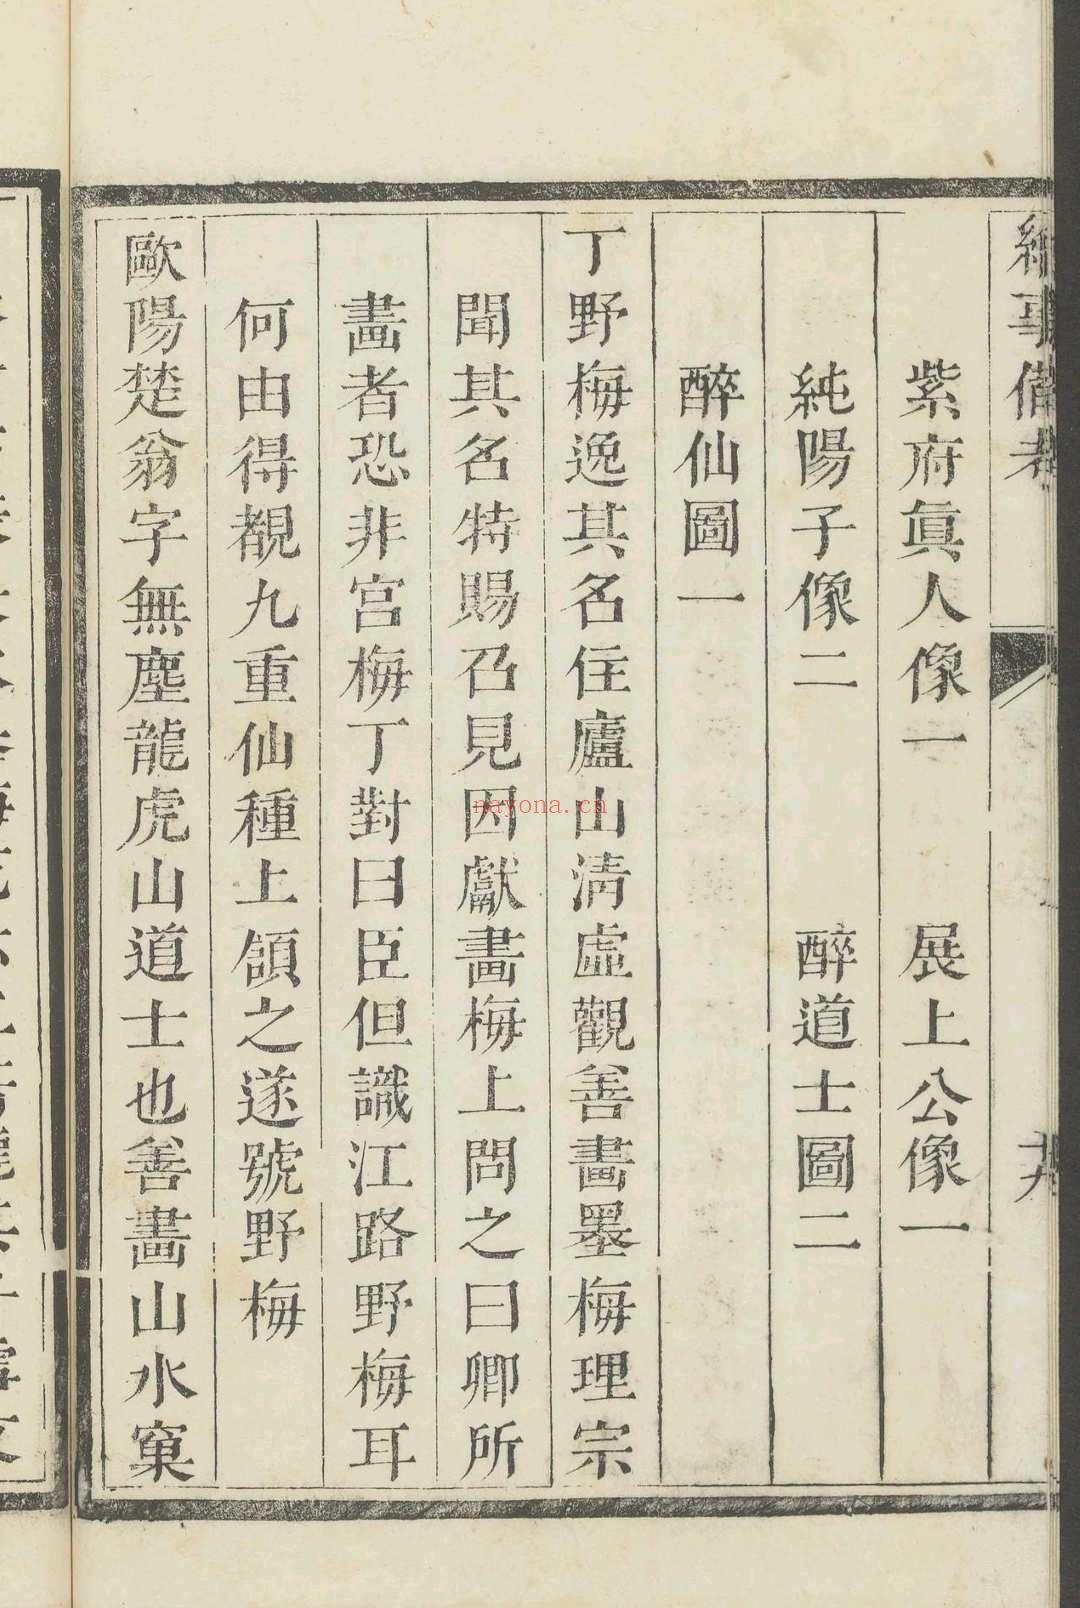 繪事備考
廿九
紫府眞人像一　展上公像一
純陽子像二　醉道士圖二
醉仙圖一
丁野梅逸其名住廬山清虛觀善畫墨梅理宗
聞其名特賜召見因獻畫梅上問之曰卿所
畫者恐非宮梅丁對曰臣但識江路野梅耳
何由得覩九重仙種上頷之遂號野梅
歐陽楚翁字無塵龍虎山道士也善畫山水窠
nayona.cn